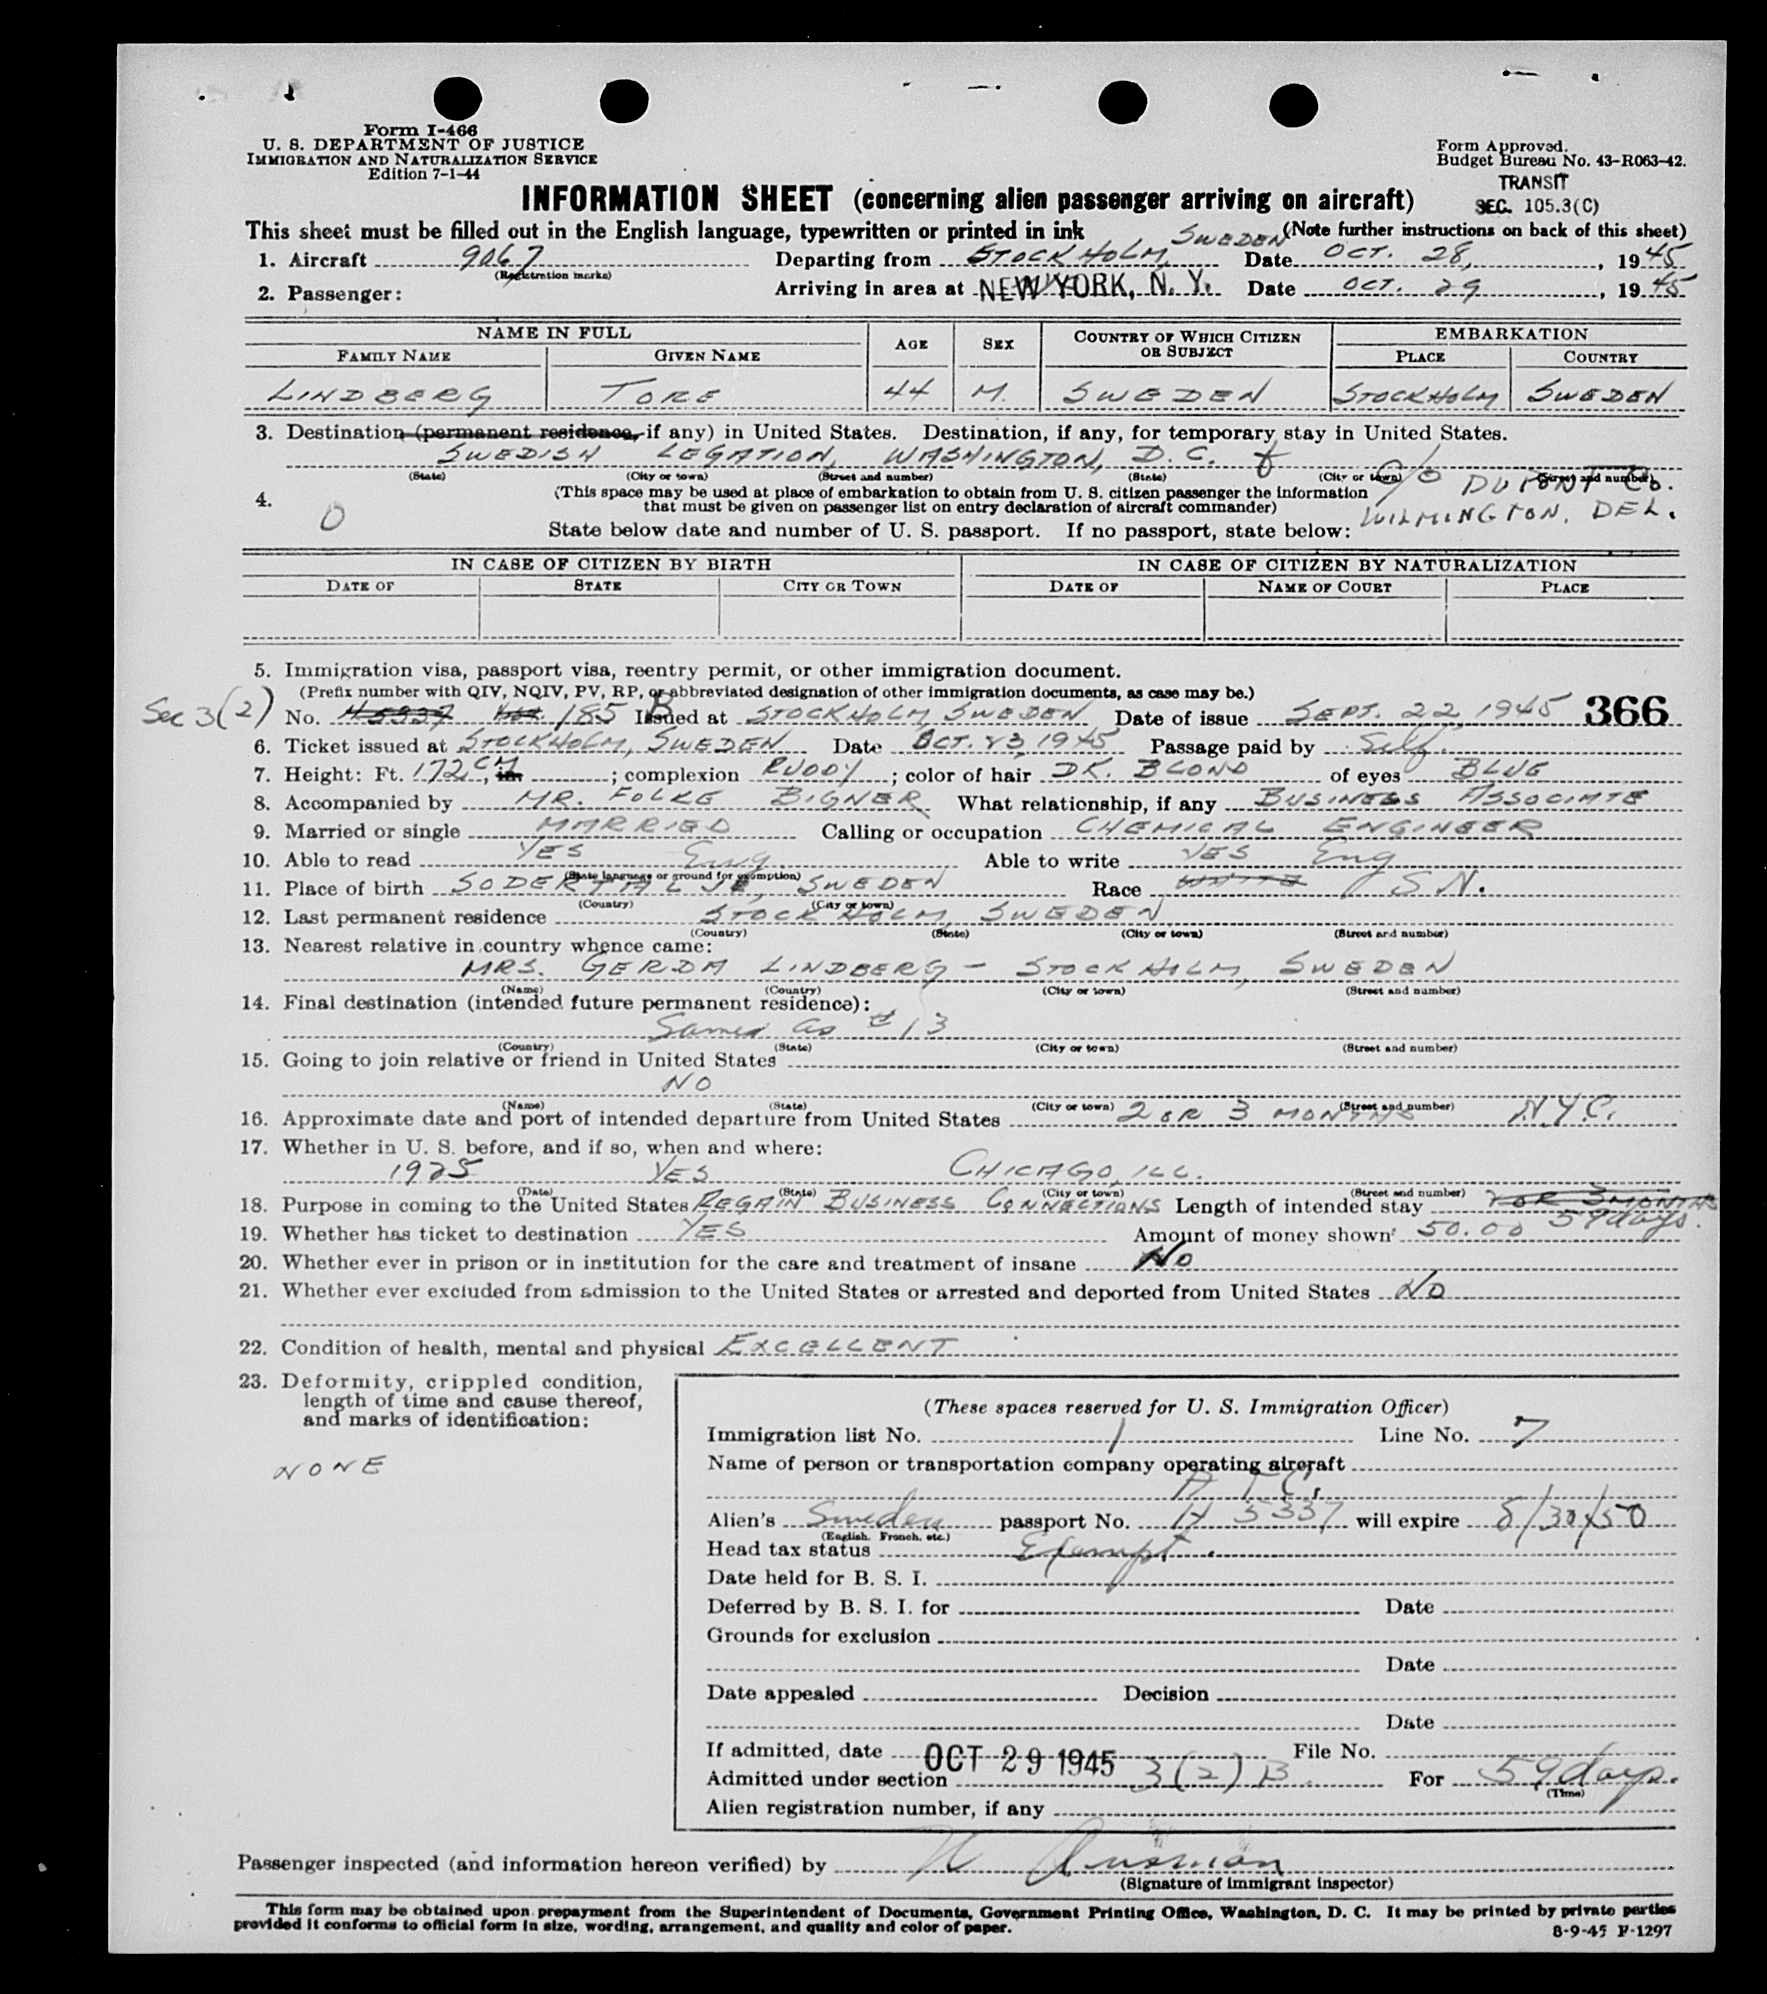 Form I-466
U. S. DEPARTMENT OF JUSTICE
IMMIGRATION AND NATURALIZATION SERVICE
Edition 7-1-44
Form Approved.
Budget Bureau No. 43-R063-42.
TRANSIT
SEC. 105.3(C)
INFORMATION SHEET (concerning alien passenger arriving on aircraft)
This sheet must be filled out in the English language, typewritten or printed in ink (Note further instructions on back of this sheet)
1. Aircraft 9067 (Registration marks) Departing from STOCKHOLM, SWEDEN Date OCT. 28, 1945
2. Passenger: Arriving in area at NEW YORK, N. Y. Date OCT. 29, 1945
NAME IN FULL AGE SEX COUNTRY OF WHICH CITIZEN OR SUBJECT EMBARKATION
FAMILY NAME GIVEN NAME PLACE COUNTRY
LINDBERG TORE 44 M. SWEDEN STOCKHOLM SWEDEN
3. Destination (permanent residence, if any) in United States. Destination, if any, for temporary stay in United States.
SWEDISH LEGATION, WASHINGTON, D.C. & C/O DUPONT CO.
(State) (City or town) (Street and number) (State) (City or town) (Street and number)
WILMINGTON, DEL.
4. 0 (This space may be used at place of embarkation to obtain from U. S. citizen passenger the information
that must be given on passenger list on entry declaration of aircraft commander)
State below date and number of U. S. passport. If no passport, state below:
IN CASE OF CITIZEN BY BIRTH IN CASE OF CITIZEN BY NATURALIZATION
DATE OF STATE CITY OR TOWN DATE OF NAME OF COURT PLACE
5. Immigration visa, passport visa, reentry permit, or other immigration document.
(Prefix number with QIV, NQIV, PV, RP, or abbreviated designation of other immigration documents, as case may be.)
Sec 3(2) B No. 185 Issued at STOCKHOLM, SWEDEN Date of issue SEPT. 22, 1945 366
6. Ticket issued at STOCKHOLM, SWEDEN Date OCT. 23, 1945 Passage paid by Self.
7. Height: Ft. 172 CM, in. ; complexion RUDDY ; color of hair DK. BLOND of eyes BLUE
8. Accompanied by MR. FOLKE BIGNER What relationship, if any BUSINESS ASSOCIATE
9. Married or single MARRIED Calling or occupation CHEMICAL ENGINEER
10. Able to read YES Eng Able to write YES Eng
(State language or ground for exemption)
11. Place of birth SODERTALJE, SWEDEN Race WHITE S.N.
(Country) (City or town)
12. Last permanent residence STOCKHOLM, SWEDEN
(Country) (State) (City or town) (Street and number)
13. Nearest relative in country whence came:
MRS. GERDA LINDBERG - STOCKHOLM, SWEDEN
(Name) (Country) (City or town) (Street and number)
14. Final destination (intended future permanent residence):
Same as #13
(Country) (State) (City or town) (Street and number)
15. Going to join relative or friend in United States
NO
(Name) (State) (City or town) (Street and number)
16. Approximate date and port of intended departure from United States 2 OR 3 MONTHS N.Y.C.
17. Whether in U. S. before, and if so, when and where:
1925 YES CHICAGO, ILL.
(Date) (State) (City or town) (Street and number)
18. Purpose in coming to the United States REGAIN BUSINESS CONNECTIONS Length of intended stay 2 OR 3 MONTHS
59 days.
19. Whether has ticket to destination YES Amount of money shown 50.00
20. Whether ever in prison or in institution for the care and treatment of insane NO
21. Whether ever excluded from admission to the United States or arrested and deported from United States NO
22. Condition of health, mental and physical EXCELLENT
23. Deformity, crippled condition,
length of time and cause thereof,
and marks of identification:
NONE
(These spaces reserved for U. S. Immigration Officer)
Immigration list No. 1 Line No. 7
Name of person or transportation company operating aircraft
A T C.
Alien's Sweden passport No. H 5337 will expire 8/30/50
(English, French, etc.)
Head tax status Exempt.
Date held for B. S. I.
Deferred by B. S. I. for Date
Grounds for exclusion
Date
Date appealed Decision
Date
If admitted, date OCT 29 1945 File No.
Admitted under section 3(2) B. For 59 days.
(Time)
Alien registration number, if any
Passenger inspected (and information hereon verified) by
(Signature of immigrant inspector)
This form may be obtained upon prepayment from the Superintendent of Documents, Government Printing Office, Washington, D. C. It may be printed by private parties
provided it conforms to official form in size, wording, arrangement, and quality and color of paper.
8-9-45 F-1297